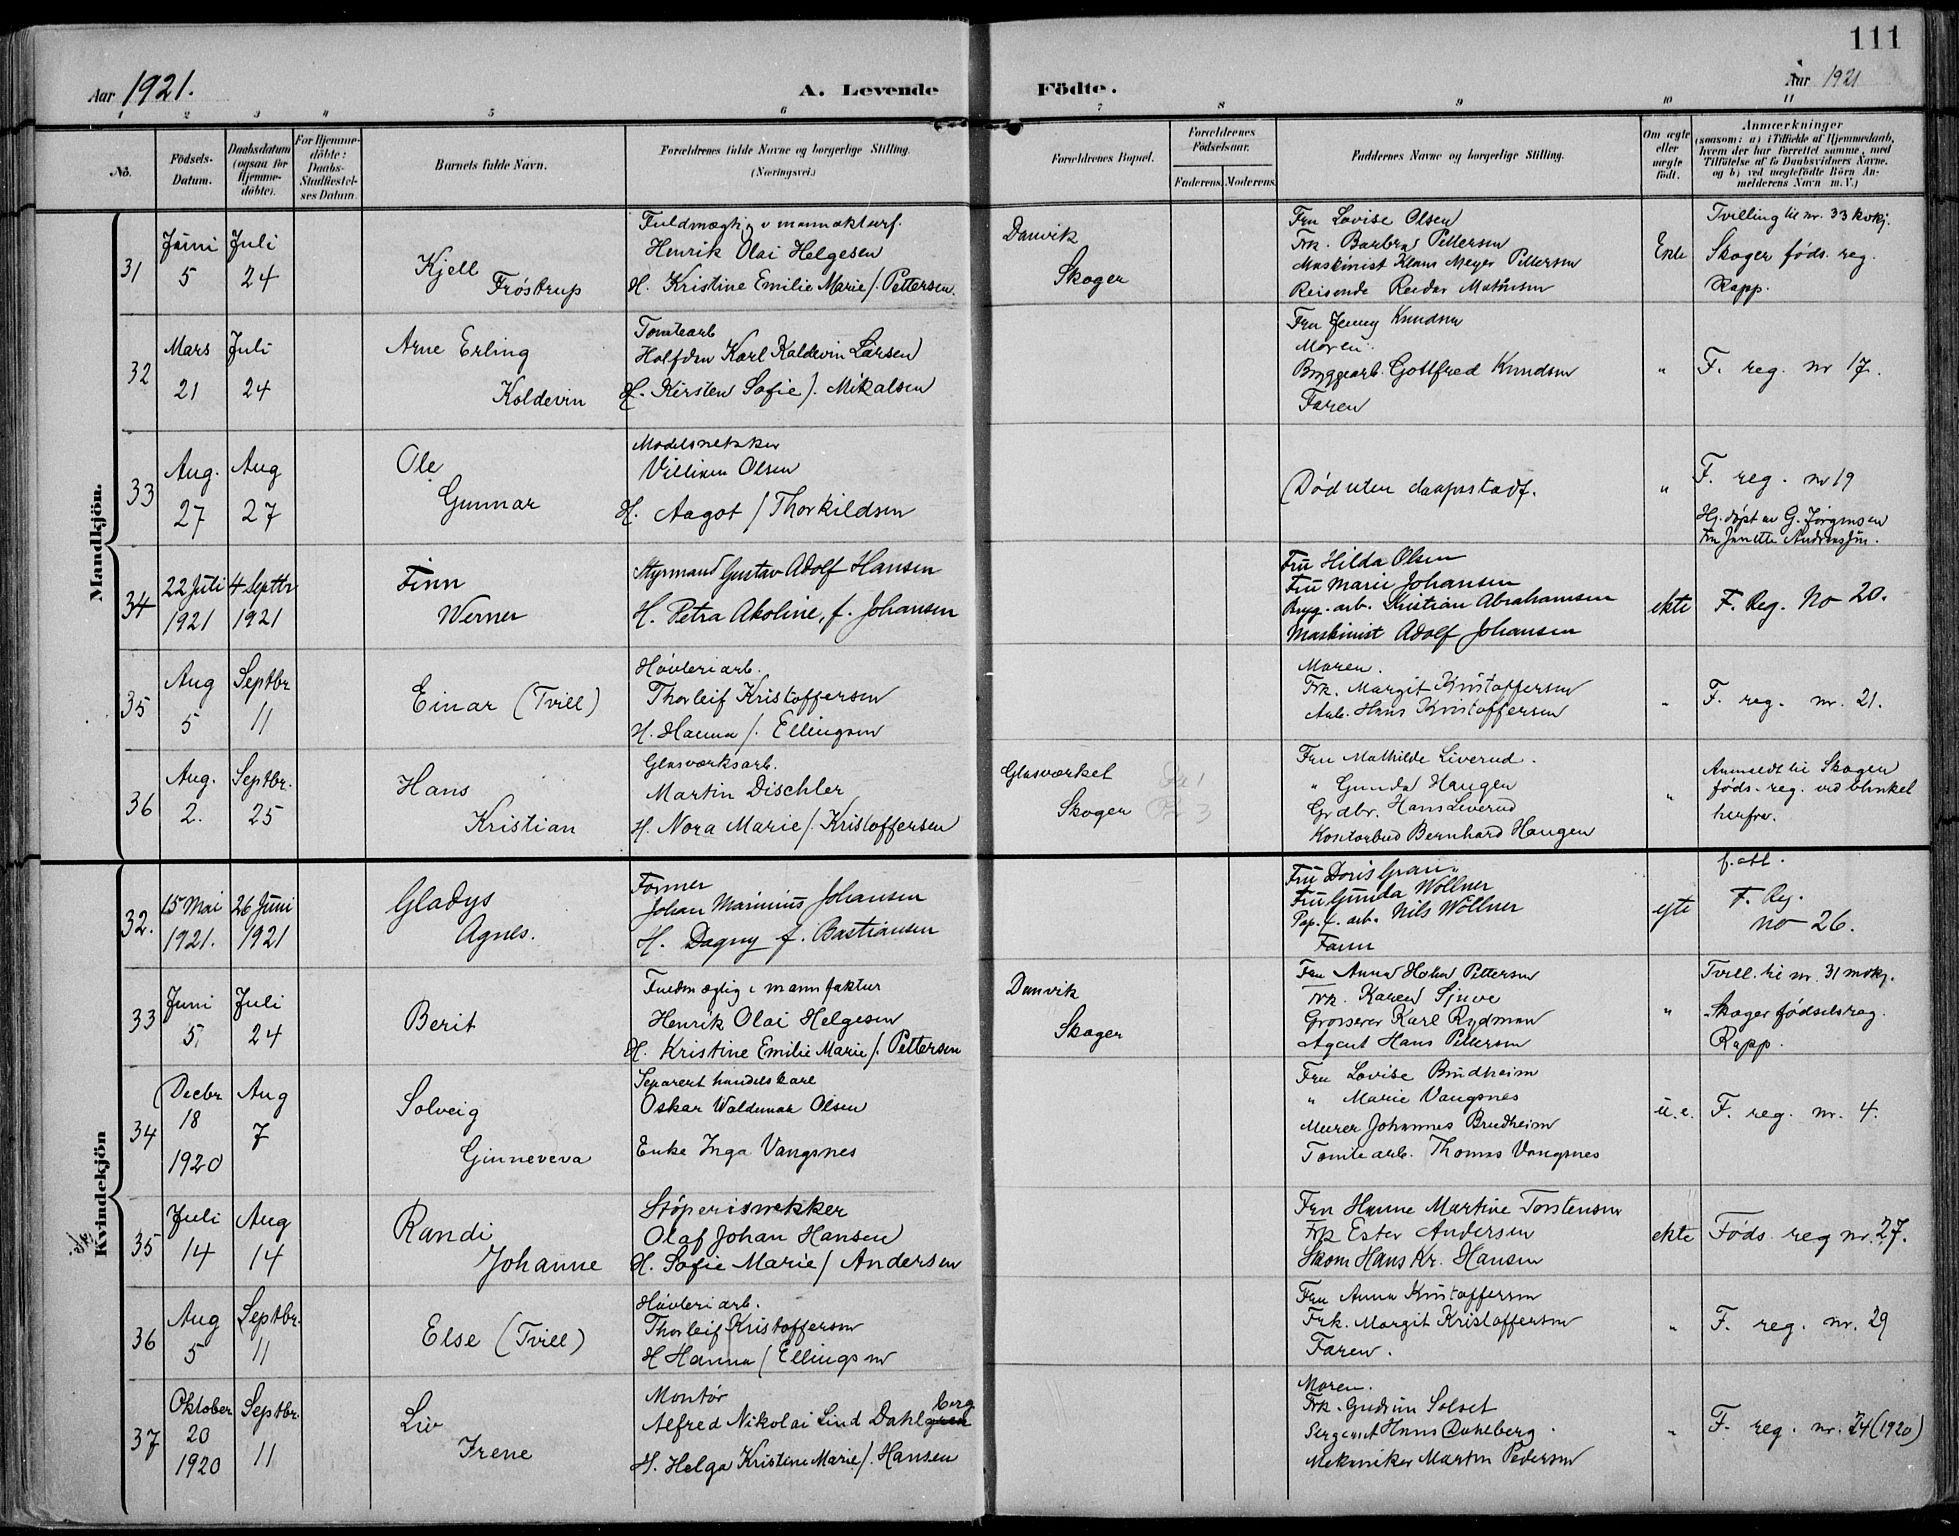 111
Aar 1921.
A. Levende Födte.
Aar 1921
1 2 3 4 5 6 7 8 9 10 11
No.
Födsels-Datum.
Daabsdatum (ogsaa for Hjemme-döbte).
For Hjemme-döbte: Daabs-Stadfæstel-ses Datum.
Barnets fulde Navn.
Forældrenes fulde Navne og borgerlige Stilling.
(Næringsvei.)
Forældrenes Bopæl.
Forældrenes Födselsaar.
Faderens. Moderens.
Faddernes Navne og borgerlige Stilling.
Om ægte eller uægte födt.
Anmærkninger
(saasom: a) i Tilfælde af Hjemmedaab, hvem der har forrettet samme, med Tilföielse af to Daabsvidners Navne. og b) ved uægtefödte Börn An-melderens Navn m. V.)
Mandkjön.
31
Juni 5
Juli 24
Kjell
Fröstrup
Henrik Olai Helgesen
H. Kristine Emilie Marie f. Pettersen.
Danvik
Skoger
Fru Lovise Olsen
Frk. Barbra Pettersen
Maskinist Klaus Meyer Pettersen
Reisende Reidar
Ekte
Tvilling til nr. 33 kvkj.
Skoger föds. reg.
Rapp.
32
Mars 21
Juli 24
Arne Erling
Koldevin
Tomtearb
Halfdan Karl Koldevin Larsen
H. Kirsten Sofie f. Mikalsen
Fru Jenny Knudsen
Moren.
Bryggearb. Gottfred Knudsen
Faren
"
F. reg. nr 17.
33
Aug. 27
Aug 27
Ole
Gunnar
Modelsnekker
Villiam Olsen
H. Aagot f Thorkildsen
Död uten daapsstadf.
"
F. reg. nr 19
Hj. döpt av G. Jörgensen
34
22 Juli 1921
4 Septbr 1921
Finn
Werner
Styrmand Gustav Adolf Hansen
H. Petra Akoline, f. Johansen
Fru Hilda Olsen
Fru Marie Johansen
Bryg. arb. Kristian Abrahamsen
Maskinist Adolf Johansen
ekte
F. Reg. No 20.
35
Aug 5
Septbr 11
Einar (Tvill)
Hövleriarb.
Thorleif Kristoffersen
H. Hanna f. Ellingsen
Moren.
Frk. Margit Kristoffersen
Arb. Hans Kristoffersen
"
F. reg. nr. 21.
36
Aug. 2.
Septbr. 25
Hans
Kristian
Glasværksarb.
Martin Dischler
H. Nora Marie f. Kristoffersen
Glasværket
Skoger
Fru Mathilde Liverud.
" Gunda Haugen
Grdbr. Hans Liverud
Kontorbud Bernhard Haugen
"
Anmeldt til Skoger
föds. reg. ved blanket
herfra.
Kvindekjön
32.
15 Mai 1921.
26 Juni 1921
Gladys
Agnes.
Former
Johan Marinius Johansen
H. Dagny f. Bastiansen
Fru Doris Gran
Fru Gunda Wollner
Pap. f. arb. Nils Wollner
egte
f. att.
F. Reg.
No 26.
33
Juni 5.
Juli 24
Berit
Henrik Olai Helgesen
H. Kristine Emilie Marie f. Pettersen
Danvik
Skoger
Fru Anna Holm Pettersen
Frk. Karen
Grosserer Karl Rydman
Agent Hans Pettersen
"
Tvill. til nr. 31 mukj.
Skoger födselsreg.
Rapp.
34
Decbr 18 1920
Aug 7
Solveig
Ginneveva
Separert handelskarl
Oskar Waldemar Olsen
Enke Inga Vangsnes
Fru Lovise Brudheim
" Marie Vangsnes
Murer Johannes Brudheim
Tomtearb. Thomas Vangsnes
u. e.
F. reg. nr. 4.
35
Juli 14
Aug 14
Randi
Johanne
Stöperisnekker
Olaf Johan Hansen
H. Sofie Marie f Andersen
Fru Hanne Martine Torstensen
Frk Ester Andersen
Skom Hans Kr. Hansen
ekte
Föds. reg nr. 27.
36
Aug 5
Septbr. 11
Else (Tvill)
Hövleriarb.
Thorleif Kristoffersen
H Hanna f Ellingsen
Fru Anna Kristoffersen
Frk. Margit Kristoffersen
Faren.
"
F. reg. nr. 29
37
Oktober 20 1920
Septbr. 11
Liv
Irene
Montör
Alfred Nikolai Lind Dahlberg
H. Helga Kristine Marie f. Hansen
Moren.
Frk. Gudrun Solset
Sergeant Hans Dahlberg.
Mekaniker Martin Pedersen
"
F. reg. nr. 34 (1920)